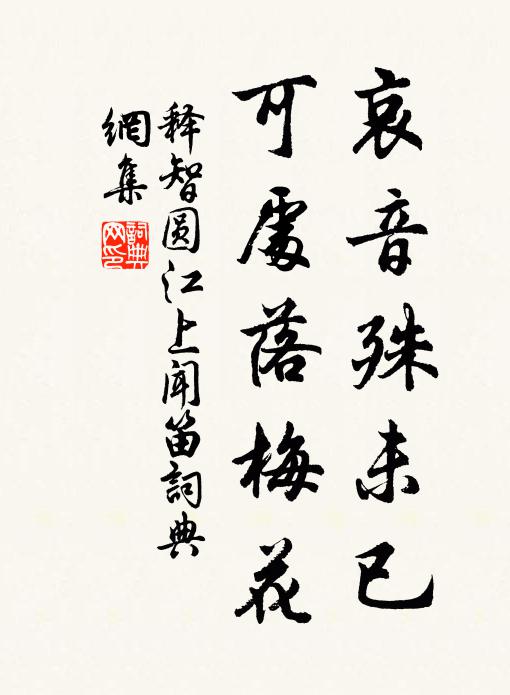 哀音殊未已
可處落梅花
释智圆江上闻笛詞典
網集
詞典网印